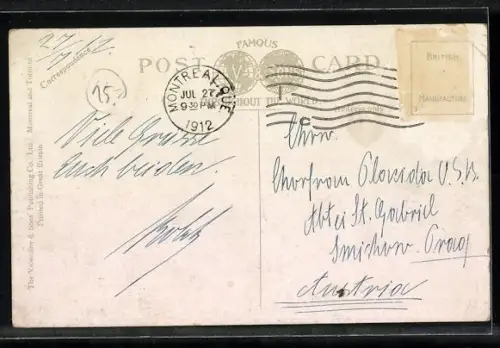 27/7 12
Correspondence.
15.
FAMOUS
POST CARD
THROUGHOUT THE WORLD
MONTREAL, QUE
JUL 27
9 30 PM
1912
BRITISH
MANUFACTURE
The Valentine & Sons Publishing Co., Ltd. Montreal and Toronto
Printed in Great Britain
Viele Grüsse
Euch beiden.
Chorfrau Placida O.S.B.
Abtei St. Gabriel
Smichow. Prag
Austria